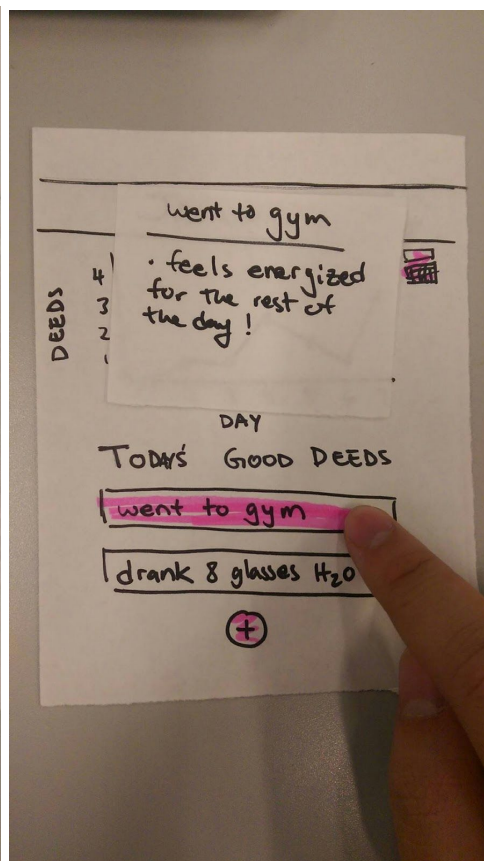 went to gym
· feels energized
for the rest of
the day !
4
3
2
1
DEEDS
DAY
TODAY'S GOOD DEEDS
went to gym
drank 8 glasses H₂O
+